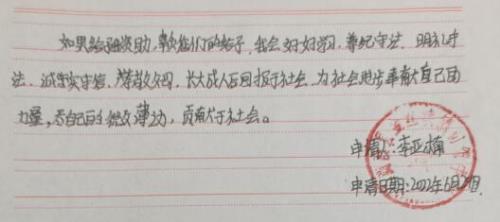 如果给予资助，我会好好学习，尊纪守法，明礼守
法，诚实守信，尊敬父母，长大成人后回报于社会，为社会奉献自己的
力量，尽自己的微薄之力，贡献于社会。
申请人：李亚楠
申请日期：2022年6月29日